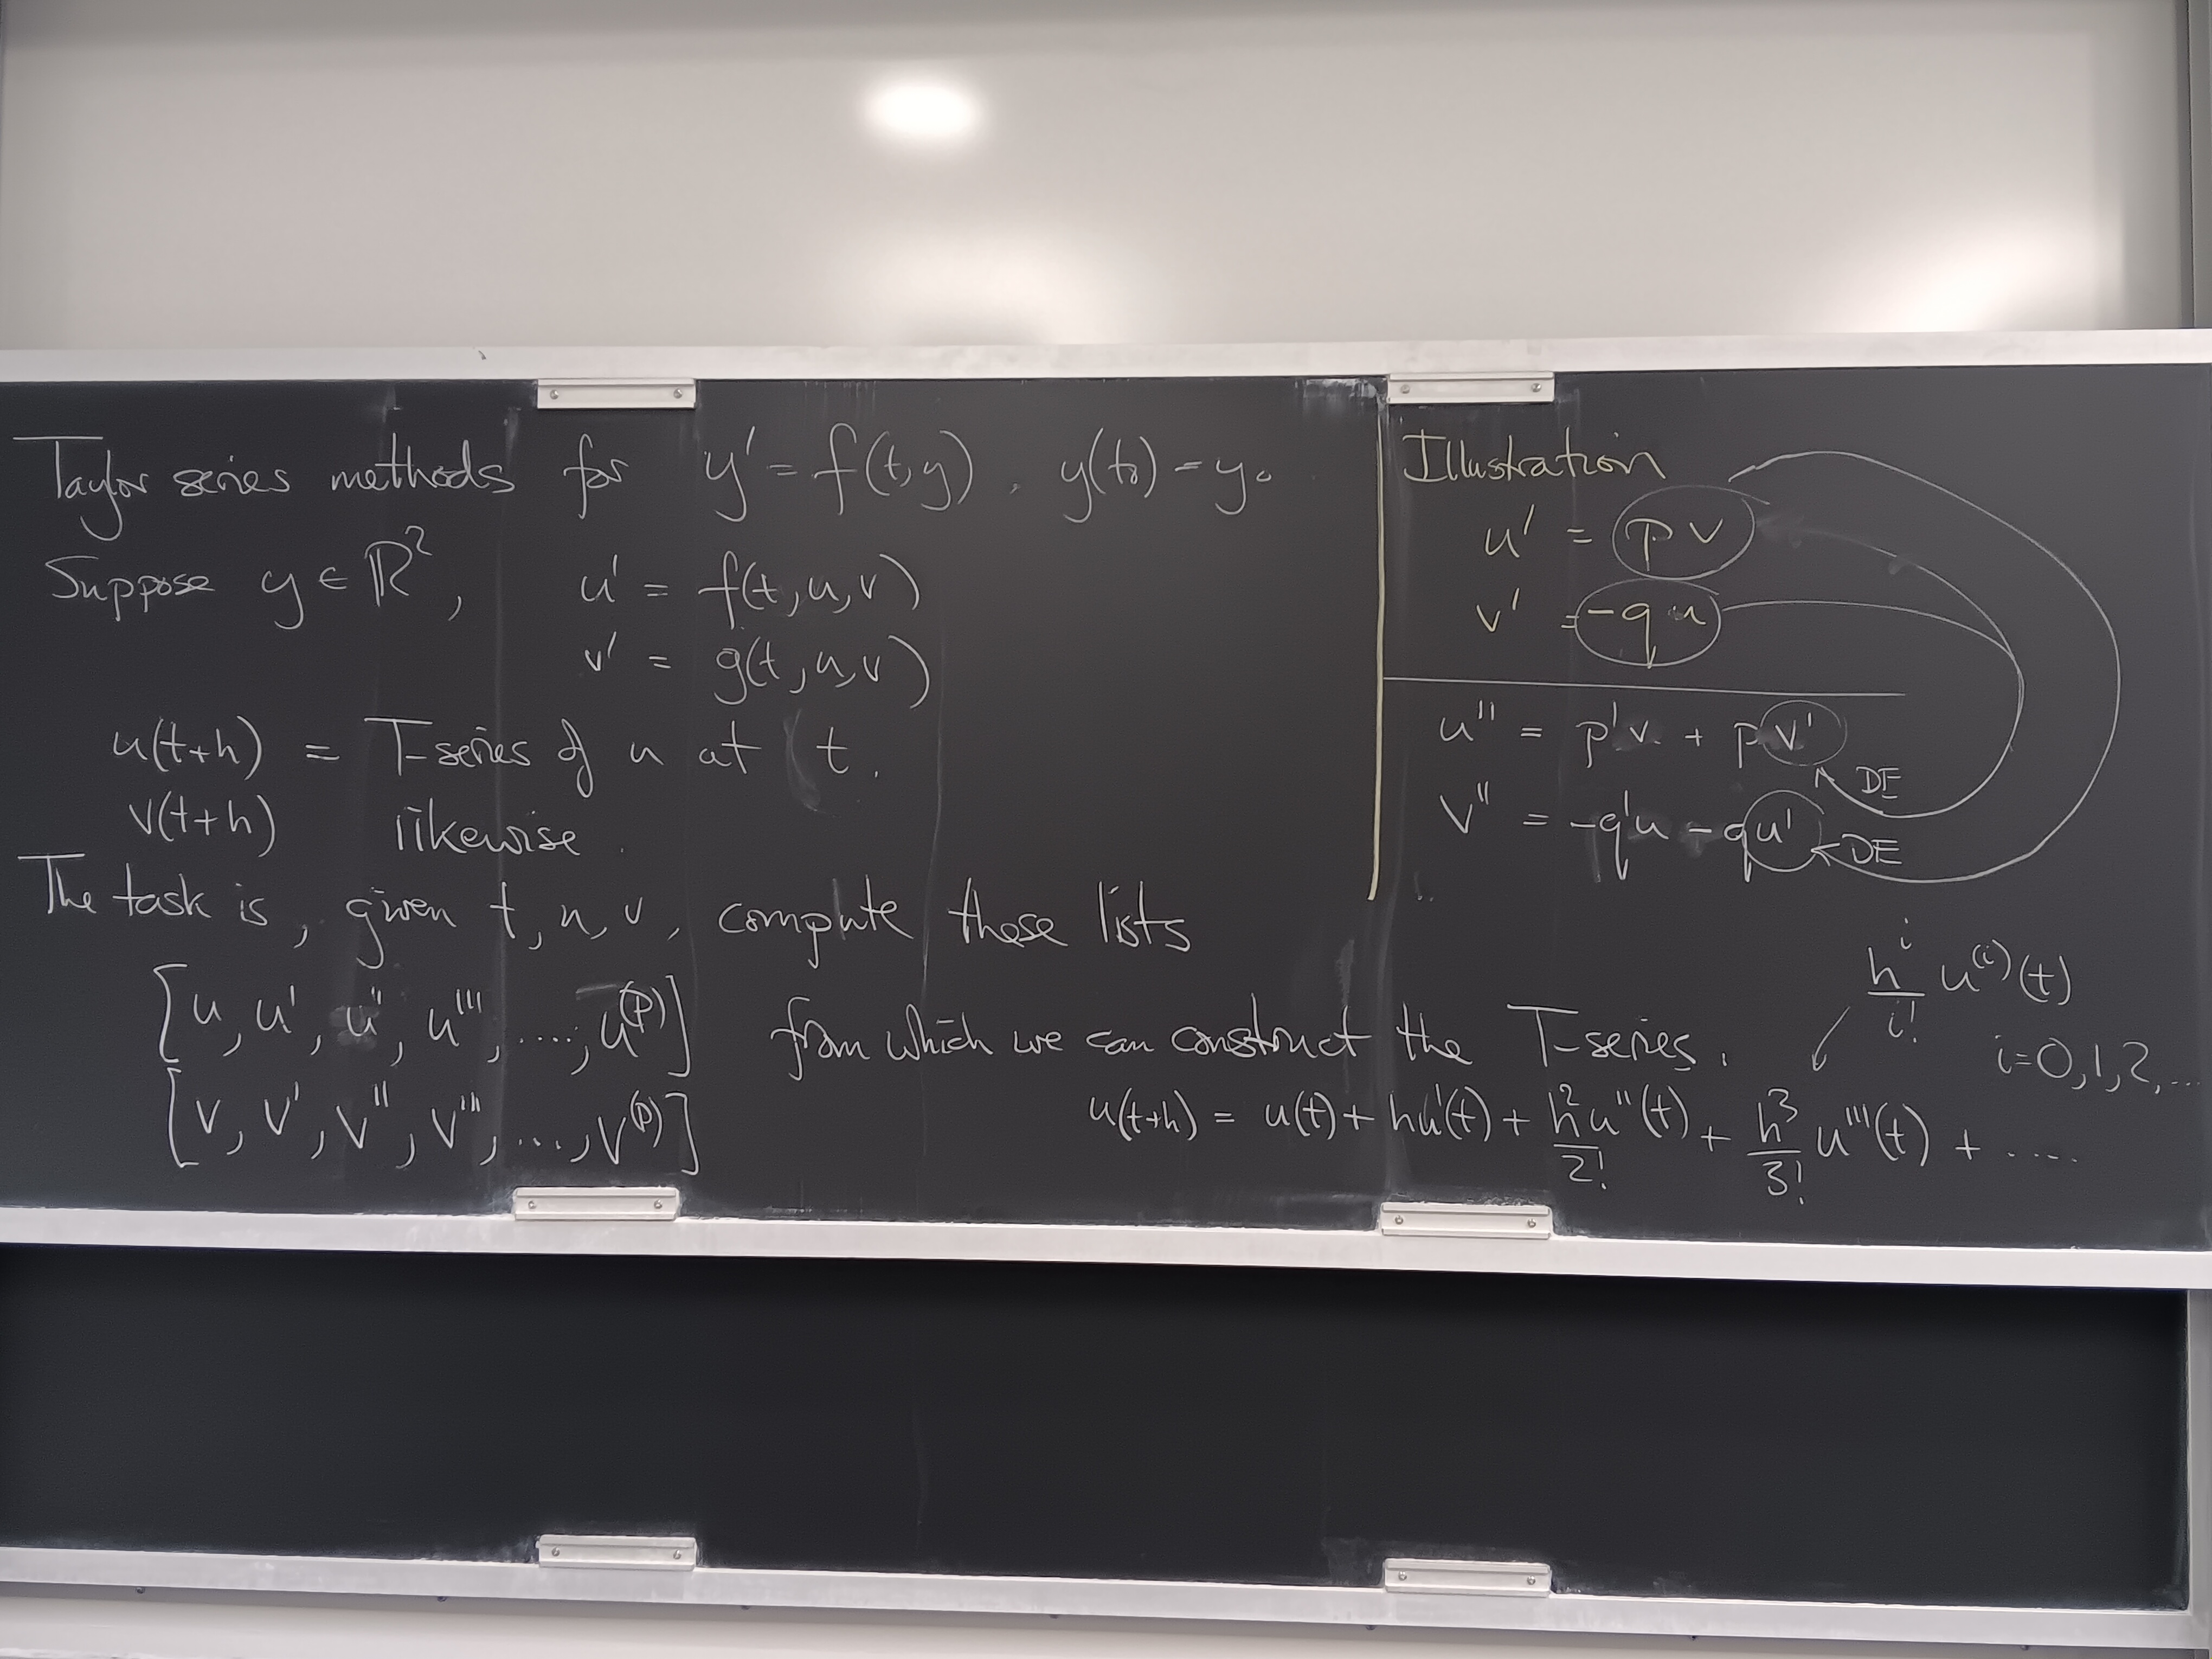 Taylor series methods for y' = f(t,y), y(t₀) = y₀
Suppose y ∈ ℝ², u' = f(t,u,v)
v' = g(t,u,v)
u(t+h) = T-series of u at t.
v(t+h) likewise.
The task is, given t, u, v, compute these lists
[u, u', u'', u''', ...., u⁽ᵖ⁾] from which we can construct the T-series.
[v, v', v'', v''', ...., v⁽ᵖ⁾]
u(t+h) = u(t) + hu'(t) + h²/2! u''(t) + h³/3! u'''(t) + ....
Illustration
u' = pv
v' = -qu
u'' = p'v + pv' DE
v'' = -q'u - qu' DE
hⁱ/i! u⁽ⁱ⁾(t)
i=0,1,2,...